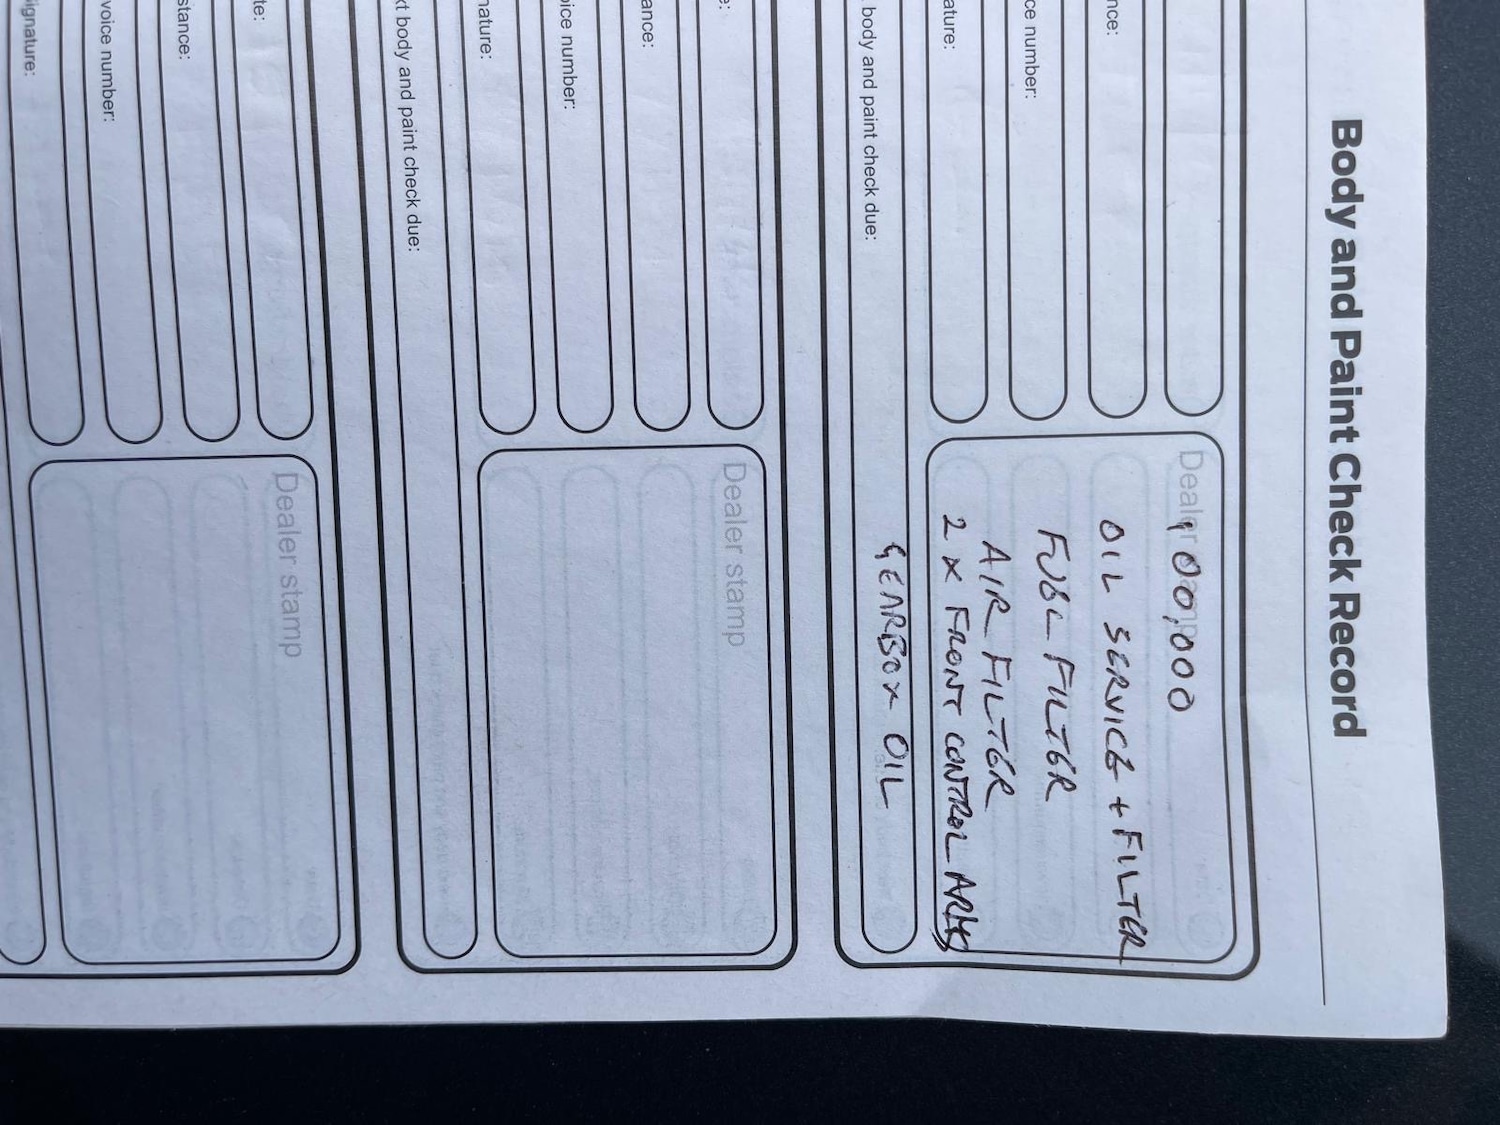 Body and Paint Check Record
nce:
ce number:
ature:
body and paint check due:
Dealer stamp
100,000
OIL SERVICE + FILTER
FUEL FILTER
AIR FILTER
2 X FRONT CONTROL ARMS
GEARBOX OIL
e:
ance:
oice number:
nature:
xt body and paint check due:
Dealer stamp
te:
stance:
voice number:
signature:
Dealer stamp